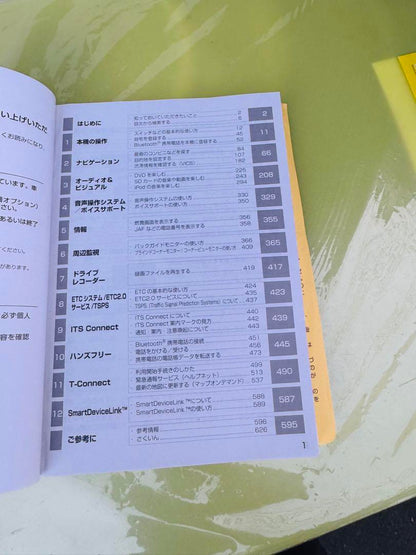 い上げいただ
くお読みになり、
ています。車
オプション)
あるいは終了
ください。
があります。
必ず個人
内容を確認
はじめに
知っておいていただきたいこと 2
目次から検索する 6
2
1 本機の操作
スイッチなどの基本的な使い方 12
自宅を登録する 45
Bluetooth®携帯電話を本機に登録する 52
11
2 ナビゲーション
最寄のコンビニなどを探す 84
目的地を設定する 107
渋滞情報を確認する(VICS) 182
66
3 オーディオ&
ビジュアル
DVD を楽しむ 225
SD カードの音楽や動画を楽しむ 243
iPod の音楽を楽しむ 294
208
4 音声操作システム
/ボイスサポート
音声操作システムの使い方 330
ボイスサポートの使い方 350
329
5 情報
燃費画面を表示する 356
JAF などの電話番号を表示する 358
355
6 周辺監視
バックガイドモニターの使い方 366
ブラインドコーナーモニター/コーナービューモニターの使い方 409
365
7 ドライブ
レコーダー
録画ファイルを再生する 419
417
8 ETCシステム/ETC2.0
サービス/TSPS
ETC の基本的な使い方 424
ETC2.0 サービスについて 435
TSPS (Traffic Signal Prediction Systems) について 437
423
9 ITS Connect
ITS Connect について 440
ITS Connect 案内マークの見方 442
通知・案内・注意喚起について 443
439
10 ハンズフリー
Bluetooth®携帯電話の接続 451
電話をかける/受ける 456
携帯電話の電話帳データを転送する 473
445
11 T-Connect
利用開始手続きのしかた 499
緊急通報サービス(ヘルプネット) 513
最新の地図に更新する(マップオンデマンド) 537
490
12 SmartDeviceLink™
SmartDeviceLink™について 588
SmartDeviceLink™の使い方 589
587
ご参考に
参考情報 596
さくいん 626
595
1